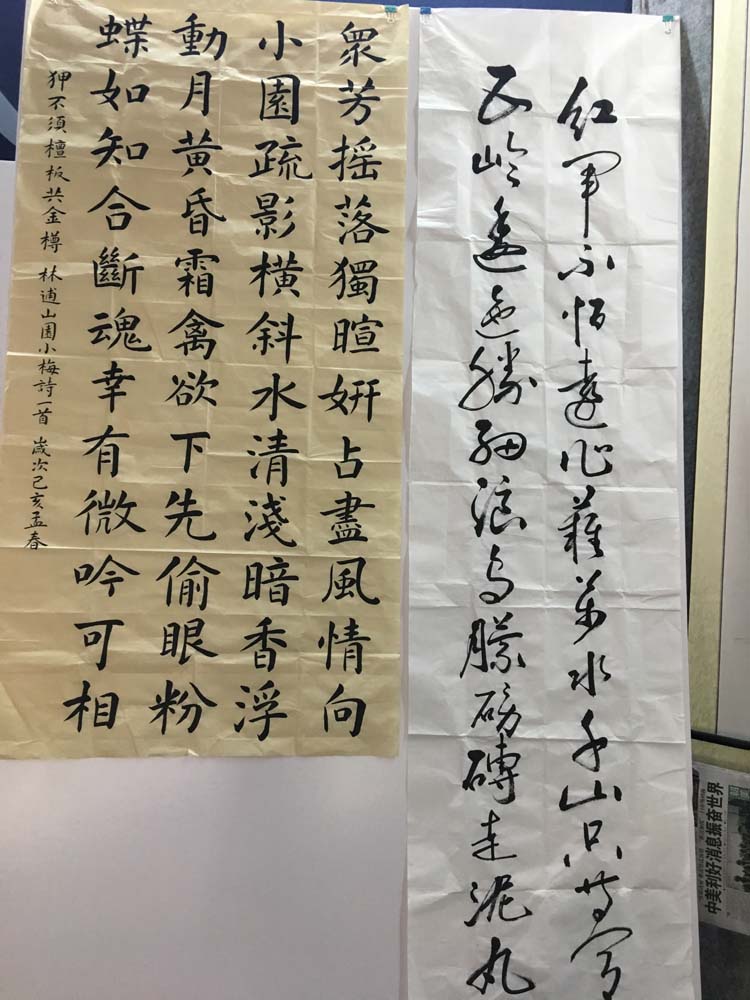 衆芳摇落獨暄妍占盡風情向
小園疏影横斜水清淺暗香浮
動月黄昏霜禽欲下先偷眼粉
蝶如知合斷魂幸有微吟可相
狎不須檀板共金樽 林逋山園小梅詩一首 歲次己亥孟春
红军不怕遠征難萬水千山只等闲
五岭逶迤腾细浪乌朦磅磚走泥丸
中美利好消息振奋世界